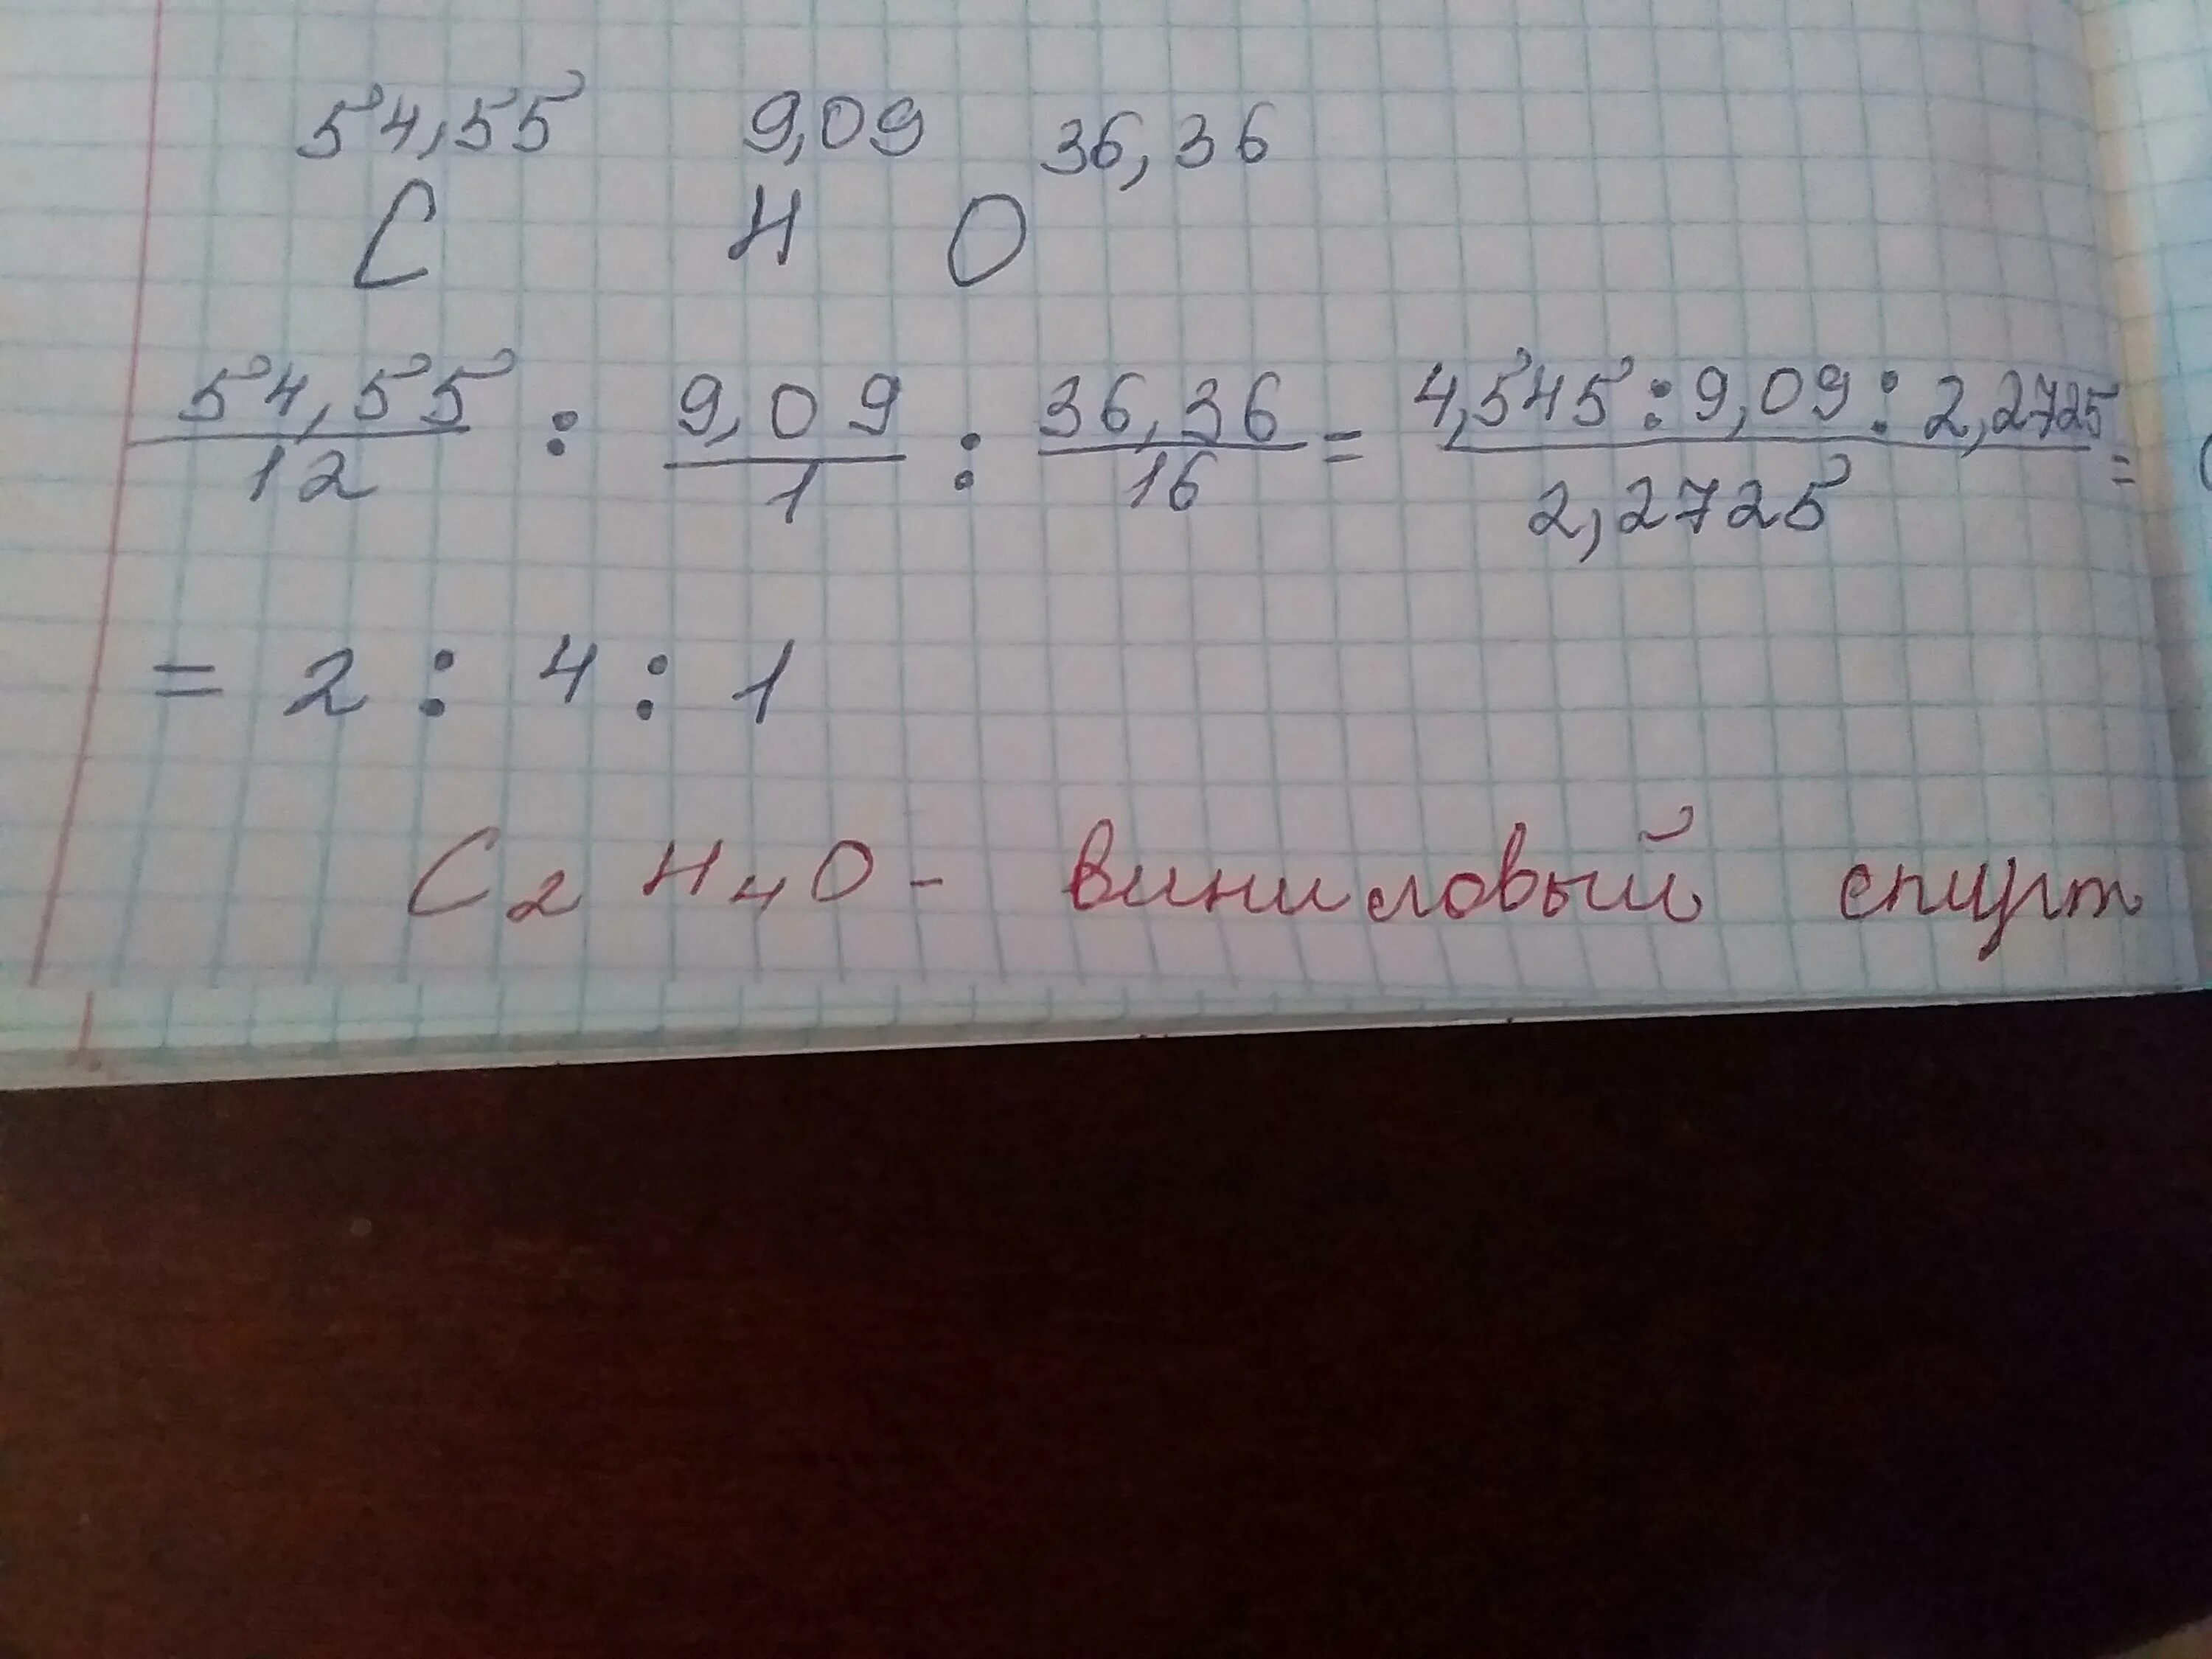 54,55 9,09 36,36
C H O
54,55/12 : 9,09/1 : 36,36/16 = 4,545 : 9,09 : 2,2725/2,2725 =
= 2 : 4 : 1
C2H4O - виниловый спирт